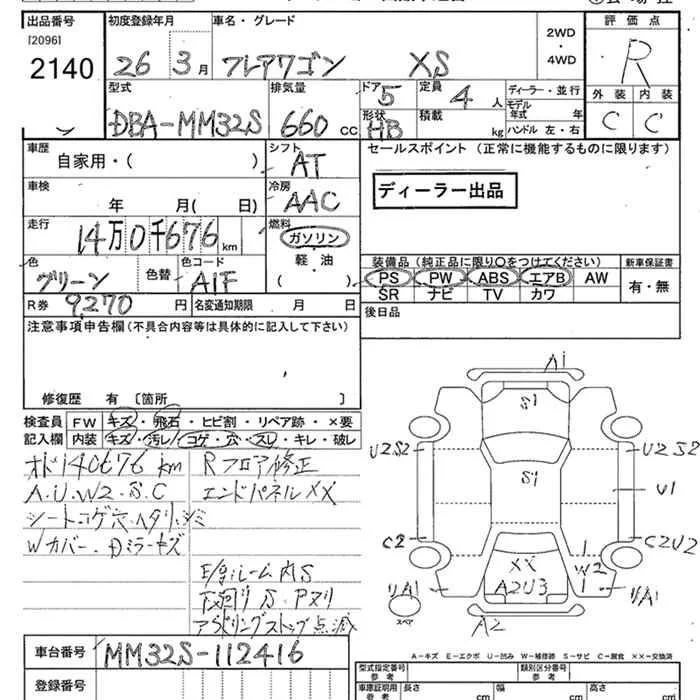 出品番号 初度登録年月 車名・グレード 2WD・4WD 評価点
[2096]
2140 26年 3月 フレアワゴン XS R
型式 排気量 ドア 定員 ディーラー・並行 外装 内装
DBA-MM32S 660cc 5 4人 モデル年式 年 C C
形状 積載 ハンドル 左・右
HB kg
車歴 シフト セールスポイント (正常に機能するものに限ります)
自家用・( ) AT
車検 冷房 ディーラー出品
年 月( 日) AAC
走行 燃料
14万0千676km ガソリン
色 色替 色コード 軽・油 装備品(純正品に限り○をつけてください) 新車保証書
グリーン A1F ( ) PS PW ABS エアB AW 有・無
SR ナビ TV カワ
R券 9270円 名変通知期限 月 日 後日品
注意事項申告欄(不具合内容等は具体的に記入して下さい)
修復歴 有 〔箇所 〕
検査員記入欄 FW キズ・飛石・ヒビ割・リペア跡・×要
内装 キズ・汚レ・コゲ・穴・スレ・キレ・破レ
オド140676km Rフロア修正
A.U.W2.S.C エンドパネルXX
シートコゲ穴.ヘタリ.シミ
Wカバー.Dミラーキズ
E/gルーム内S
下廻りS.Pヌリ
アイドリングストップ点滅
A1
S1
U2S2 U2S2
S1
U1
C2 C2U2
XX W2
リA1 A2U3 リA1
スペア
A2
A-キズ E-エクボ U-凹み W-補修跡 S-サビ C-腐食 XX-交換済
車台番号 MM32S-112416
型式指定番号 参考 類別区分番号 参考
登録番号 車庫証明用 参考 長さ cm 幅 cm 高さ cm